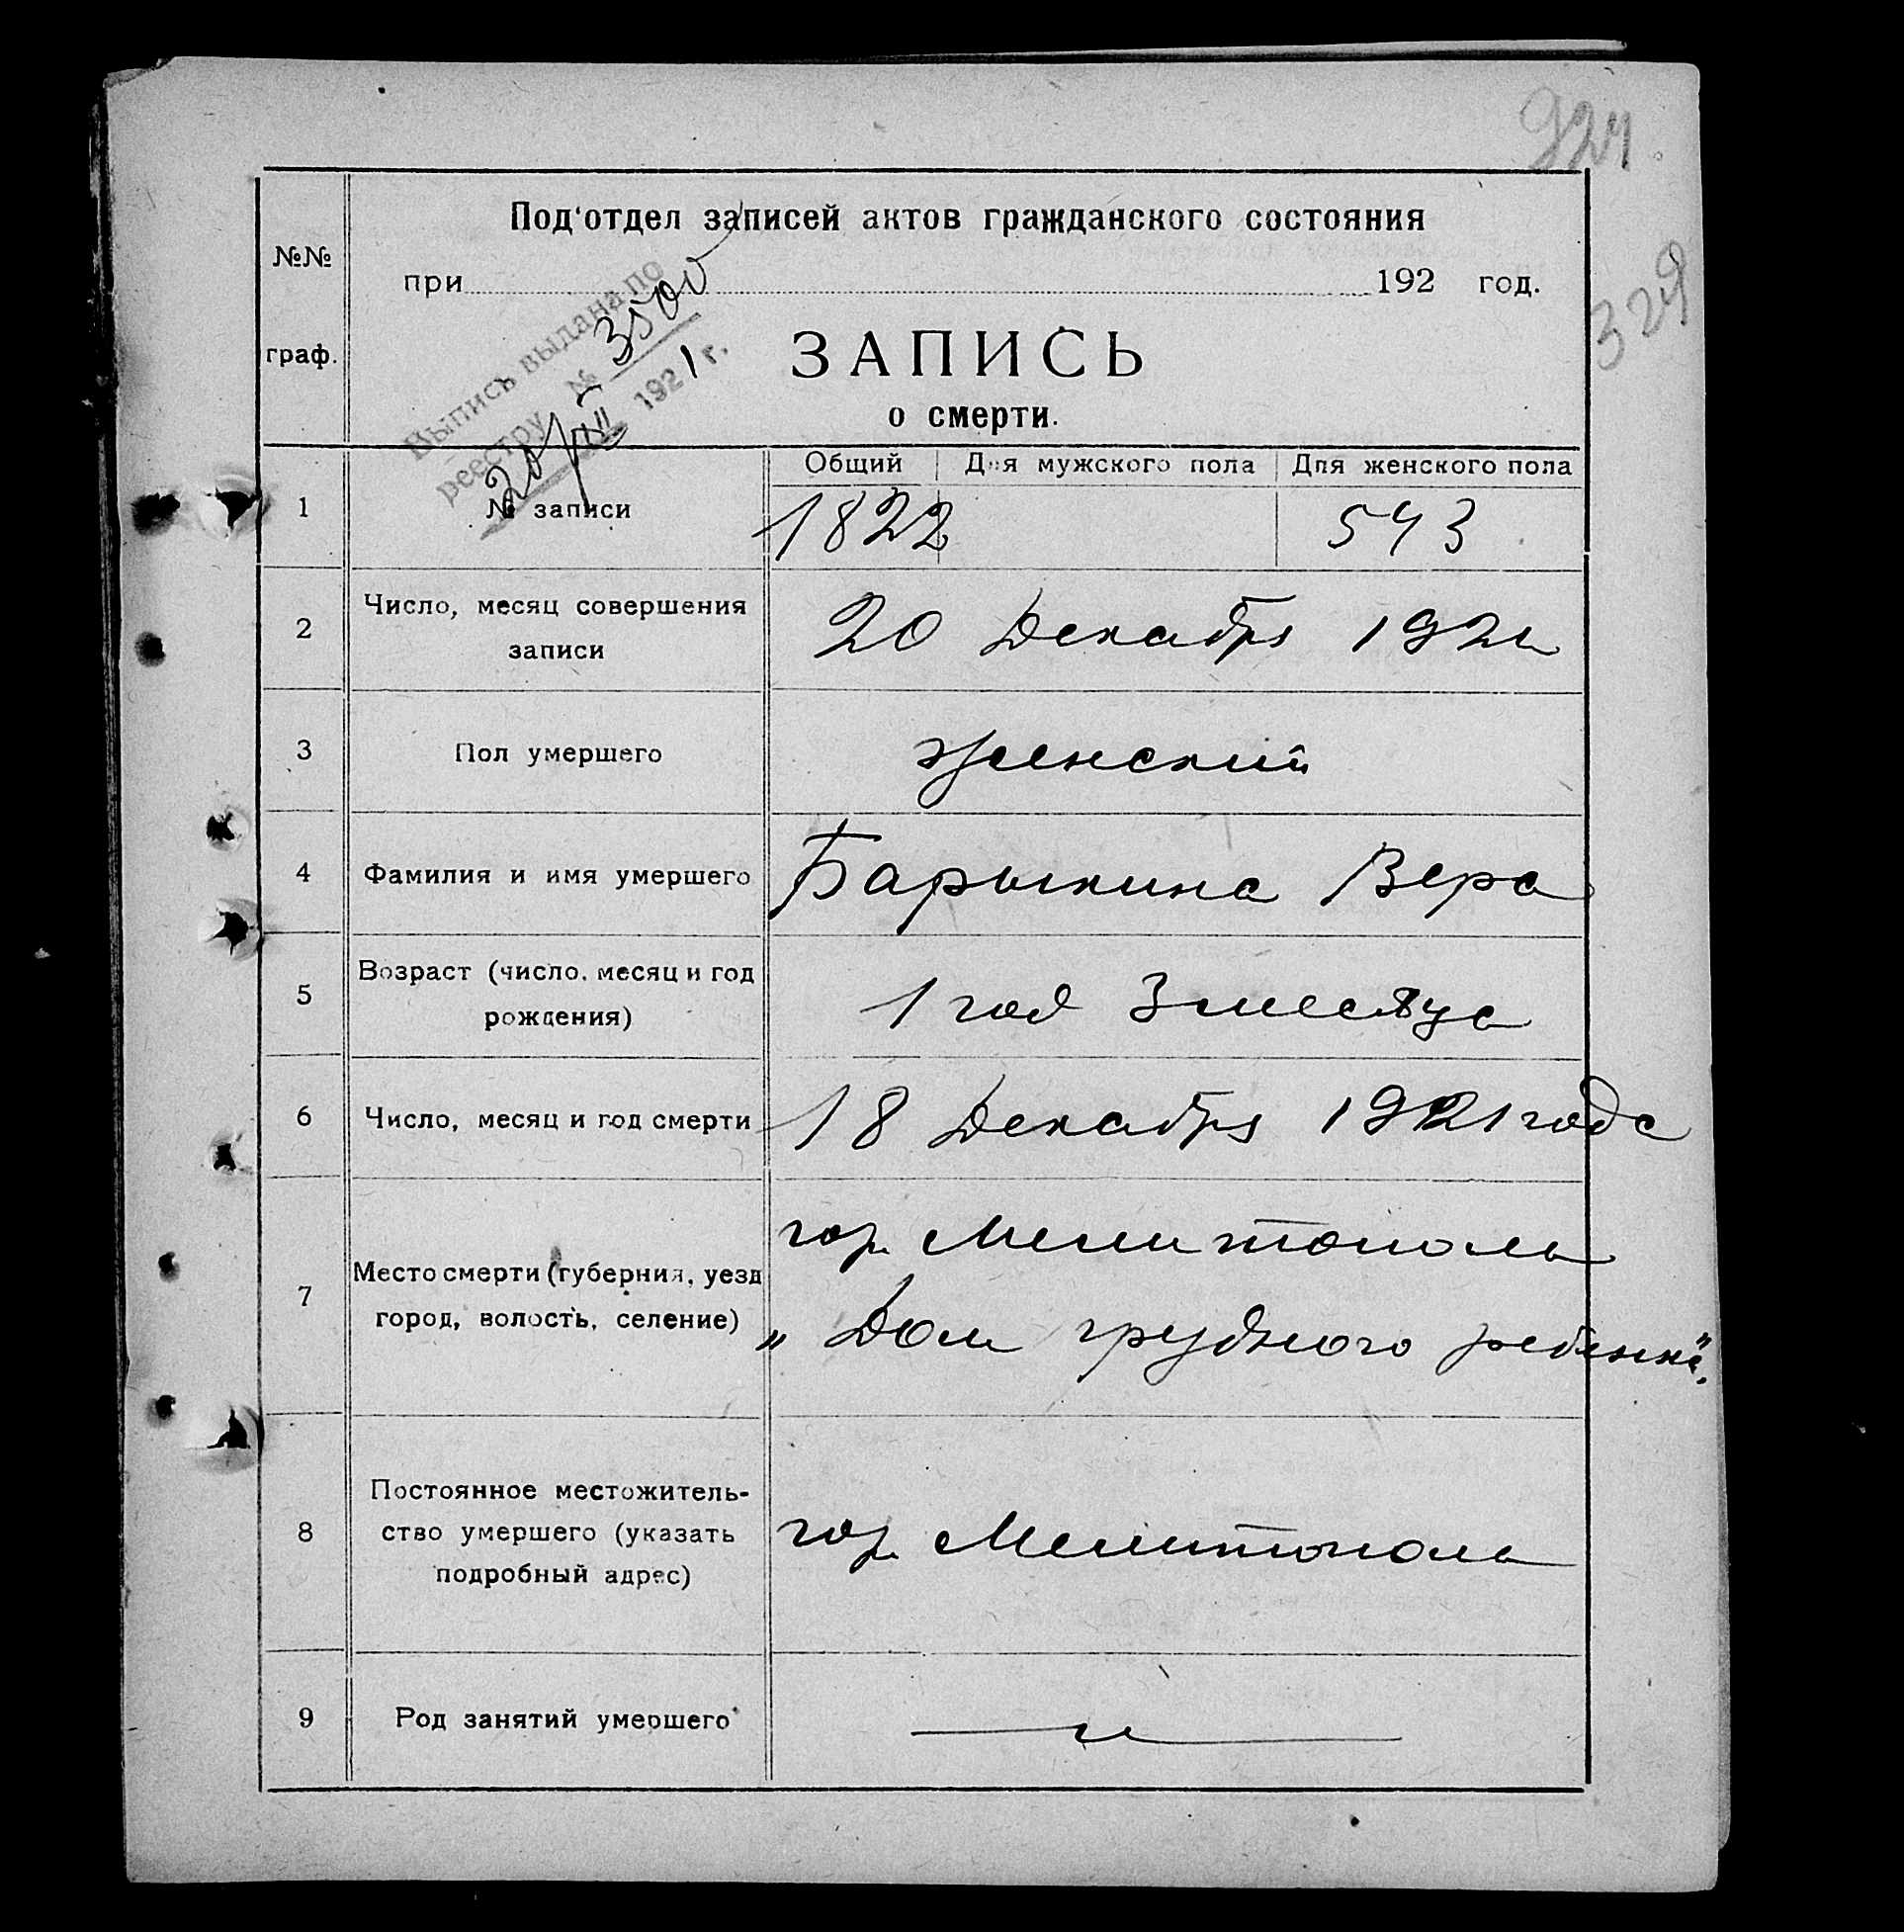 924
Под‘отдел записей актов гражданского состояния
№№
при 192 год.
329
Выпись выдана по
реестру № 3500
20/XII 1921 г.
граф.
ЗАПИСЬ
о смерти.
Общий Для мужского пола Для женского пола
1 № записи 1822 543
2 Число, месяц совершения
записи
20 Декабря 1921
3 Пол умершего женский
4 Фамилия и имя умершего Барыкина Вера
5 Возраст (число, месяц и год
рождения)
1 год 3 месяца
6 Число, месяц и год смерти 18 Декабря 1921 года
7 Место смерти (губерния, уезд
город, волость, селение)
гор. Мелитополь
„Дом грудного ребенка".
8 Постоянное местожитель-
ство умершего (указать
подробный адрес)
гор. Мелитополь
9 Род занятий умершего — „ —